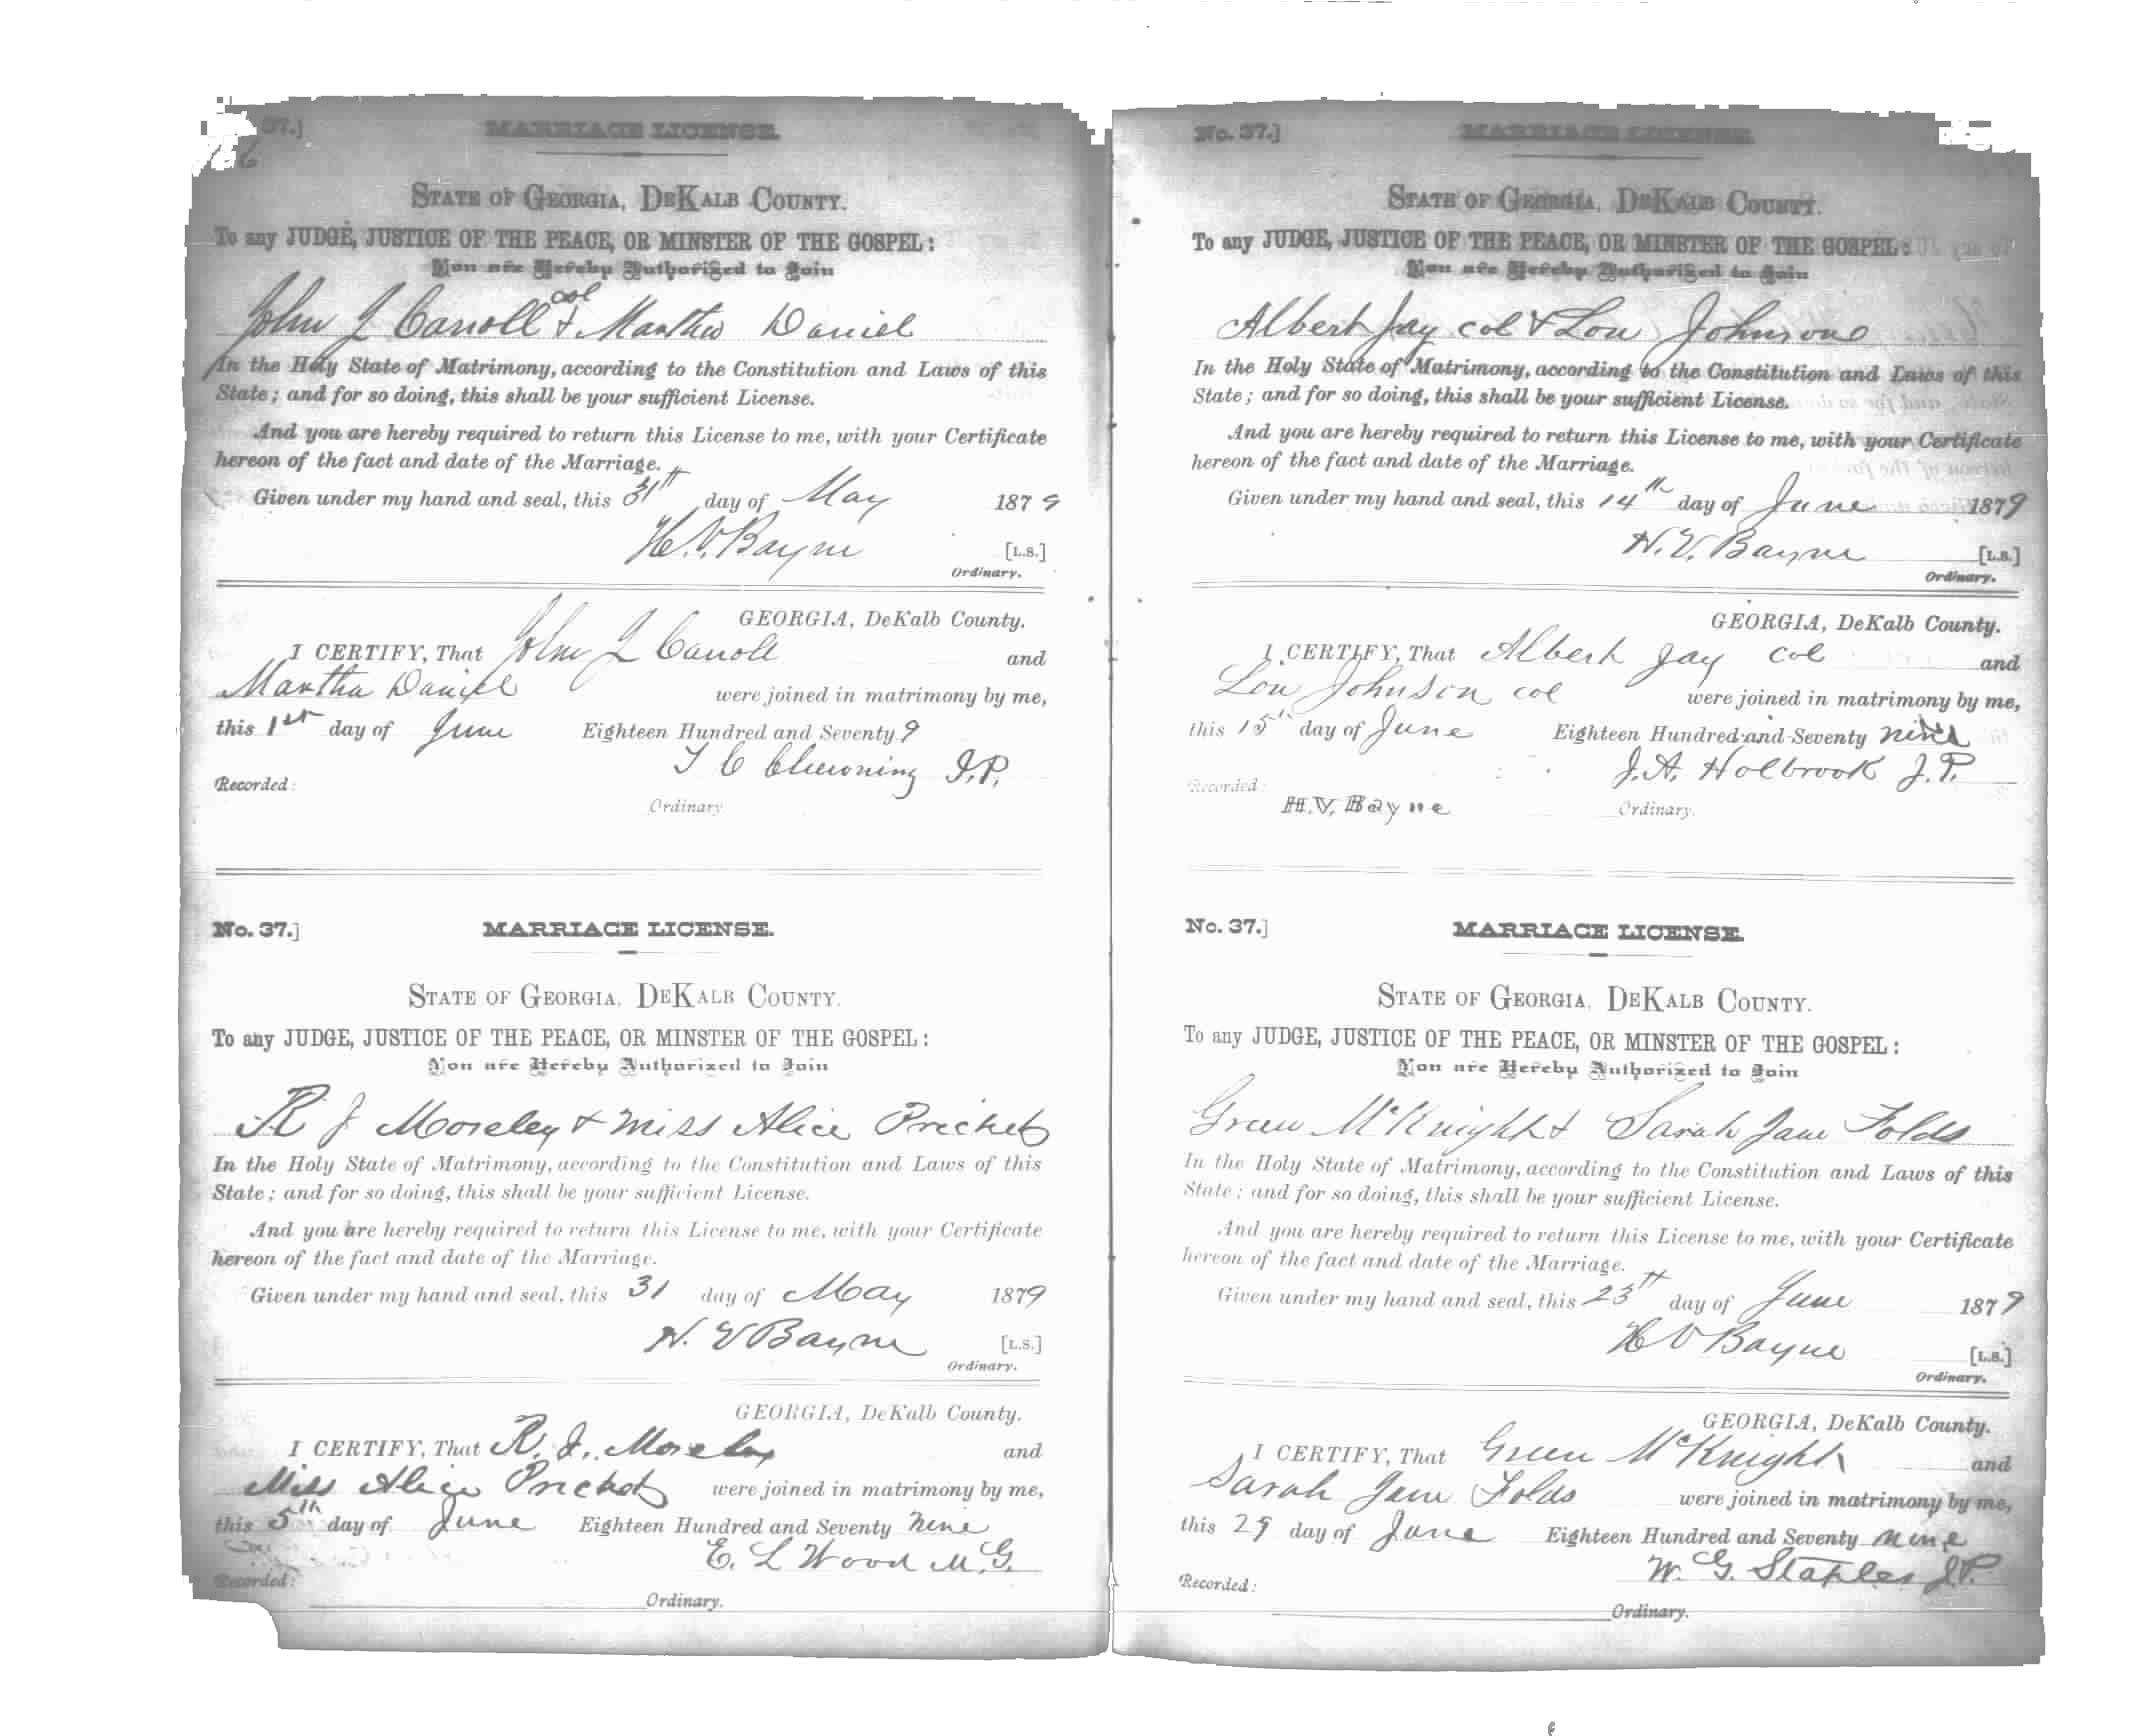 37.]
MARRIAGE LICENSE.
STATE OF GEORGIA, DEKALB COUNTY.
To any JUDGE, JUSTICE OF THE PEACE, OR MINSTER OF THE GOSPEL:
You are Hereby Authorized to Join
John J Carroll col & Martha Daniel
In the Holy State of Matrimony, according to the Constitution and Laws of this
State; and for so doing, this shall be your sufficient License.
And you are hereby required to return this License to me, with your Certificate
hereon of the fact and date of the Marriage.
Given under my hand and seal, this 31th day of May 1879
H. V. Bayne [L.S.]
Ordinary.
GEORGIA, DeKalb County.
I CERTIFY, That John J Carroll and
Martha Daniel were joined in matrimony by me,
this 1st day of June Eighteen Hundred and Seventy 9
T C Chewning J.P.
Recorded:
Ordinary
No. 37.]
MARRIAGE LICENSE.
STATE OF GEORGIA, DEKALB COUNTY.
To any JUDGE, JUSTICE OF THE PEACE, OR MINSTER OF THE GOSPEL:
You are Hereby Authorized to Join
R J Moseley & Miss Alice Pricket
In the Holy State of Matrimony, according to the Constitution and Laws of this
State; and for so doing, this shall be your sufficient License.
And you are hereby required to return this License to me, with your Certificate
hereon of the fact and date of the Marriage.
Given under my hand and seal, this 31 day of May 1879
H. V Bayne [L.S.]
Ordinary.
GEORGIA, DeKalb County.
I CERTIFY, That R. J. Moseley and
Miss Alice Pricket were joined in matrimony by me,
this 5th day of June Eighteen Hundred and Seventy nine
E. L Wood M.G.
Recorded:
Ordinary.
No. 37.]
MARRIAGE LICENSE.
STATE OF GEORGIA, DEKALB COUNTY.
To any JUDGE, JUSTICE OF THE PEACE, OR MINSTER OF THE GOSPEL:
You are Hereby Authorized to Join
Albert Jay col & Lou Johnson
In the Holy State of Matrimony, according to the Constitution and Laws of this
State; and for so doing, this shall be your sufficient License.
And you are hereby required to return this License to me, with your Certificate
hereon of the fact and date of the Marriage.
Given under my hand and seal, this 14th day of June 1879
H. V. Bayne [L.S.]
Ordinary.
GEORGIA, DeKalb County.
I CERTIFY, That Albert Jay col and
Lou Johnson col were joined in matrimony by me,
this 15th day of June Eighteen Hundred and Seventy nine
J. A. Holbrook J.P.
Recorded:
H. V. Bayne Ordinary.
No. 37.]
MARRIAGE LICENSE.
STATE OF GEORGIA, DEKALB COUNTY.
To any JUDGE, JUSTICE OF THE PEACE, OR MINSTER OF THE GOSPEL:
You are Hereby Authorized to Join
Green McKnight & Sarah Jane Folds
In the Holy State of Matrimony, according to the Constitution and Laws of this
State; and for so doing, this shall be your sufficient License.
And you are hereby required to return this License to me, with your Certificate
hereon of the fact and date of the Marriage.
Given under my hand and seal, this 23th day of June 1879
H V Bayne [L.S.]
Ordinary.
GEORGIA, DeKalb County.
I CERTIFY, That Green McKnight and
Sarah Jane Folds were joined in matrimony by me,
this 29 day of June Eighteen Hundred and Seventy nine
W. G. Staples J.P.
Recorded:
Ordinary.